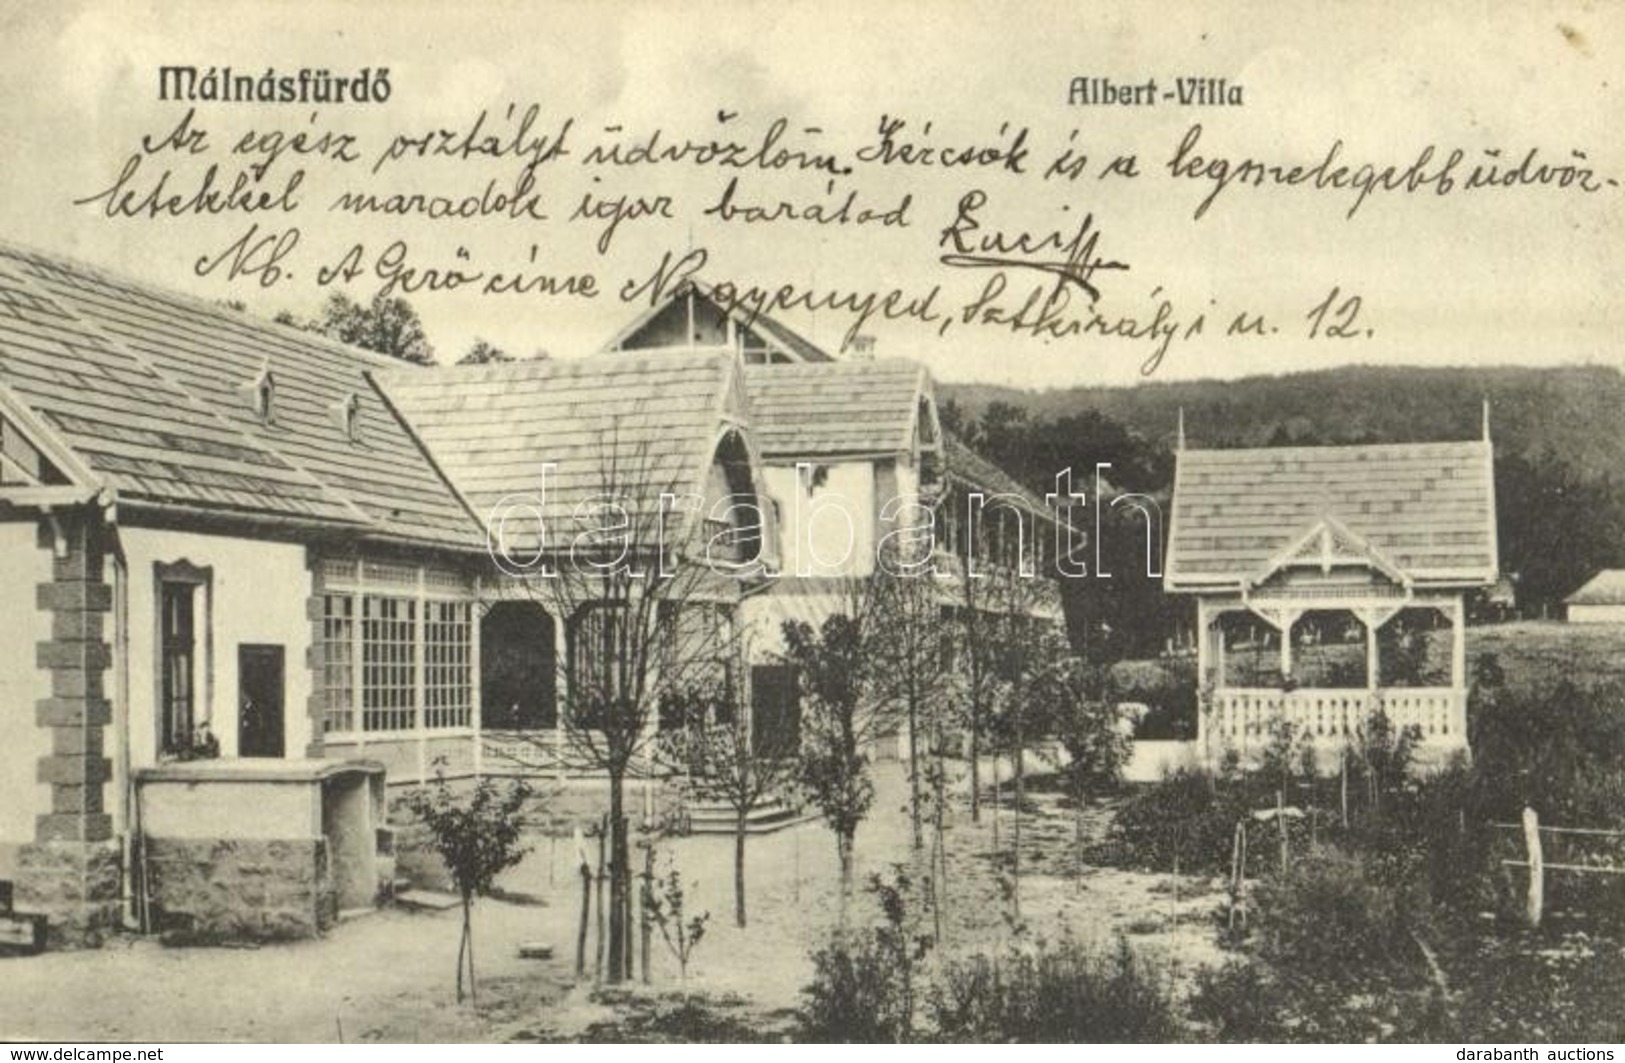 Málnásfürdő Albert-Villa
Az egész osztályt üdvözlöm. Kércsók és a legmelegebb üdvöz-
letekkel maradok igaz barátod
Nb. A Gerő címe Nagyenyed, Sztkirályi u. 12.
darabanth
www.delcampe.net
darabanth auctions